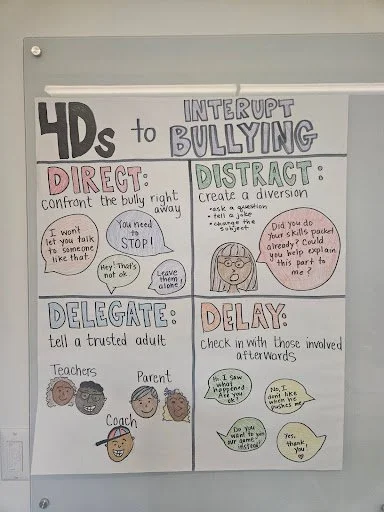 4Ds to INTERUPT
BULLYING
DIRECT:
confront the bully right
away
I won't
let you talk
to someone
like that.
You need
to
STOP!
Hey! That's
not ok
Leave
them
alone!
DISTRACT:
create a diversion
• ask a question
• tell a joke
• change the
subject
Did you do
your skills packet
already? Could
you help explain
this part to
me?
DELEGATE:
tell a trusted adult
Teachers
Parent
Coach
DELAY:
check in with those involved
afterwards
Hi. I saw
what
happened.
Are you
ok?
No, I
dont like
when he
pushes me.
Do you
want to join
our game
instead?
Yes,
thank
you